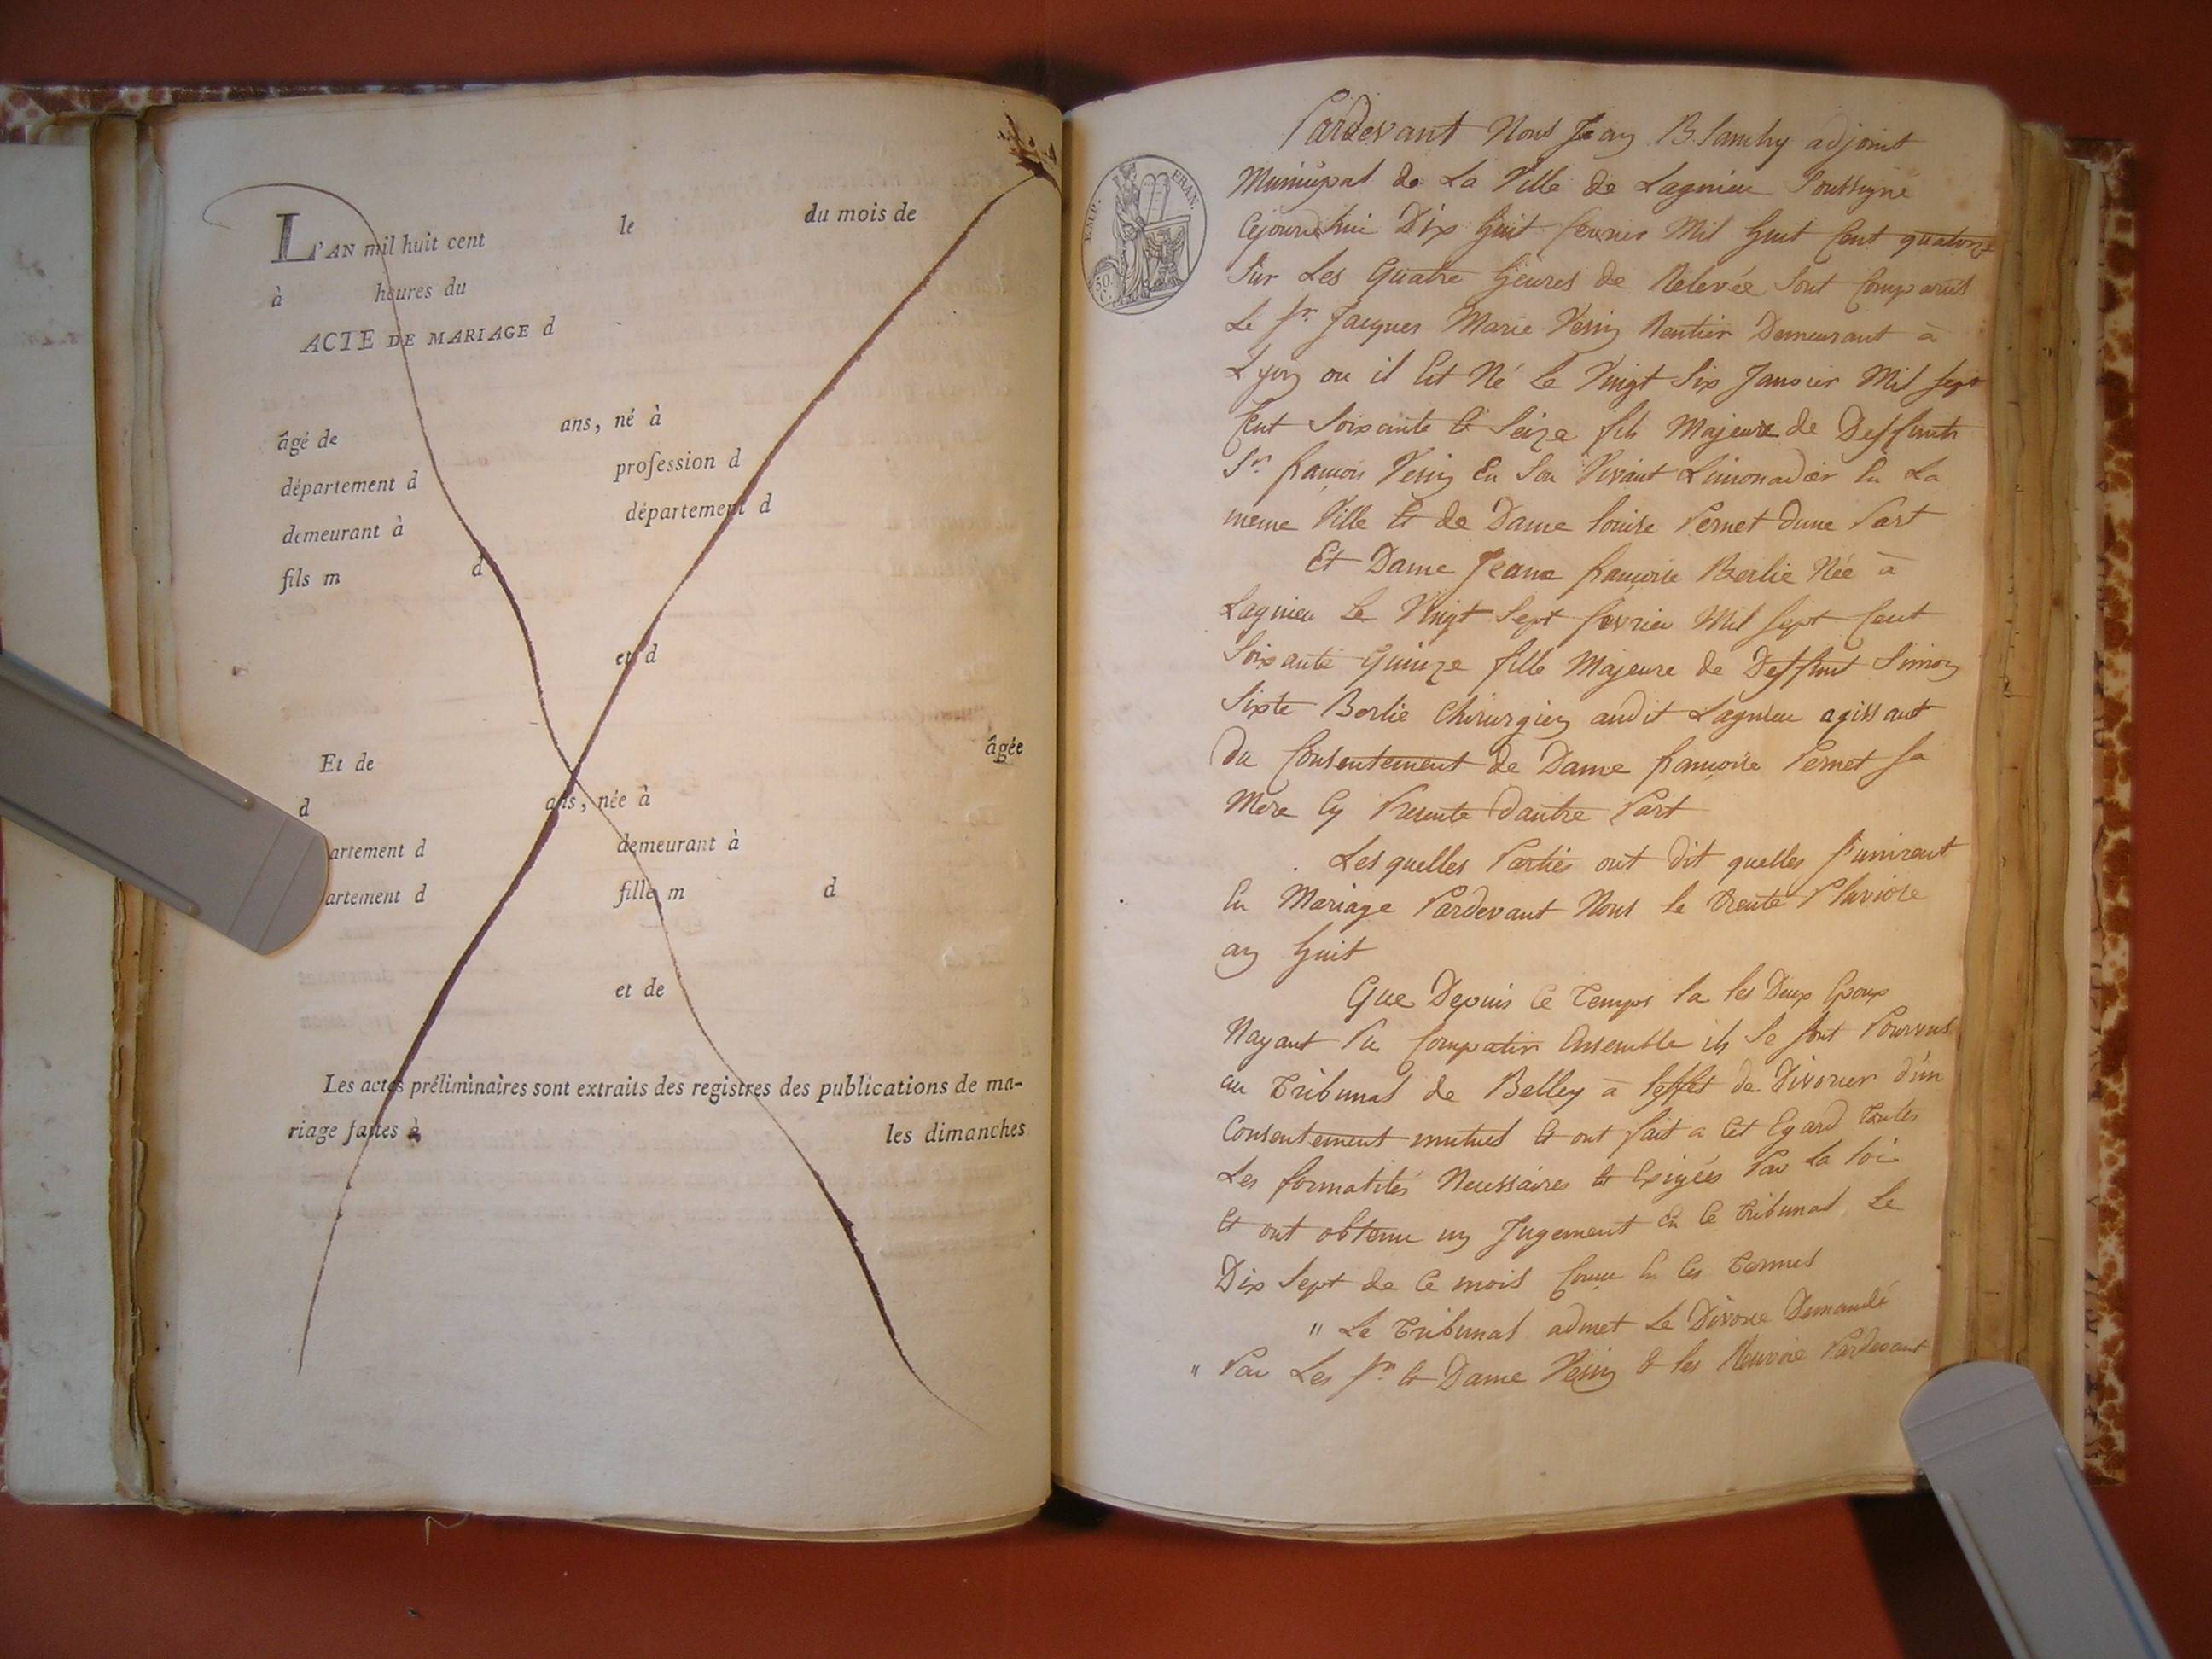 L'AN mil huit cent le du mois de
à heures du
ACTE DE MARIAGE d
âgé de ans, né à
département d profession d
demeurant à département d
fils m d
et d
Et de âgée
d ans, née à
artement d demeurant à
artement d fille m d
et de
Les actes préliminaires sont extraits des registres des publications de ma-
riage faites à les dimanches
EMP. FRAN.
50 C.
Pardevant Nous Jean adjoint
Municipal de La Ville de Lagnieu Soussigné
Cejourdhui Dix huit fevrier Mil huit Cent quatorze
Sur Les Quatre heures de Relevée Sont Comparus
Le Sr. Jacques Marie Rentier Demeurant à
Lyon ou il Est Né Le Vingt Six Janvier Mil Sept
Cent Soixante et Seize fils Majeur de Deffunts
Sr. francois En Son Vivant Limonadier En La
meme Ville Et de Dame Louise Pernet dune Part
Et Dame Jeane francoise Berlie Née à
Lagnieu Le Vingt Sept fevrier Mil Sept Cent
Soixante Quinze fille Majeure de Deffunt Simon
Sixte Berlie Chirurgien audit Lagnieu agissant
du Consentement de Dame francoise Pernet Sa
Mere Cy Presente dautre Part
Les quelles Parties ont dit quelles S'unirent
En Mariage Pardevant Nous le trente Pluviose
an huit
Que Depuis Ce Temps la les Deux Epoux
Nayant Pu Compatir Ensemble ils Se Sont Pourvus
au Tribunal de Belley à Leffet de Divorcer d'un
Consentement mutuel Et ont fait a Cet Egard toutes
Les formalités Necessaires Et Exigées Par La loi
Et ont obtenu un Jugement En Ce tribunal Le
Dix Sept de Ce mois Concu En Ces termes
" Le Tribunal admet Le Divorce Demandé
" Par Les Sr. Et Dame & les Renvoie Pardevant